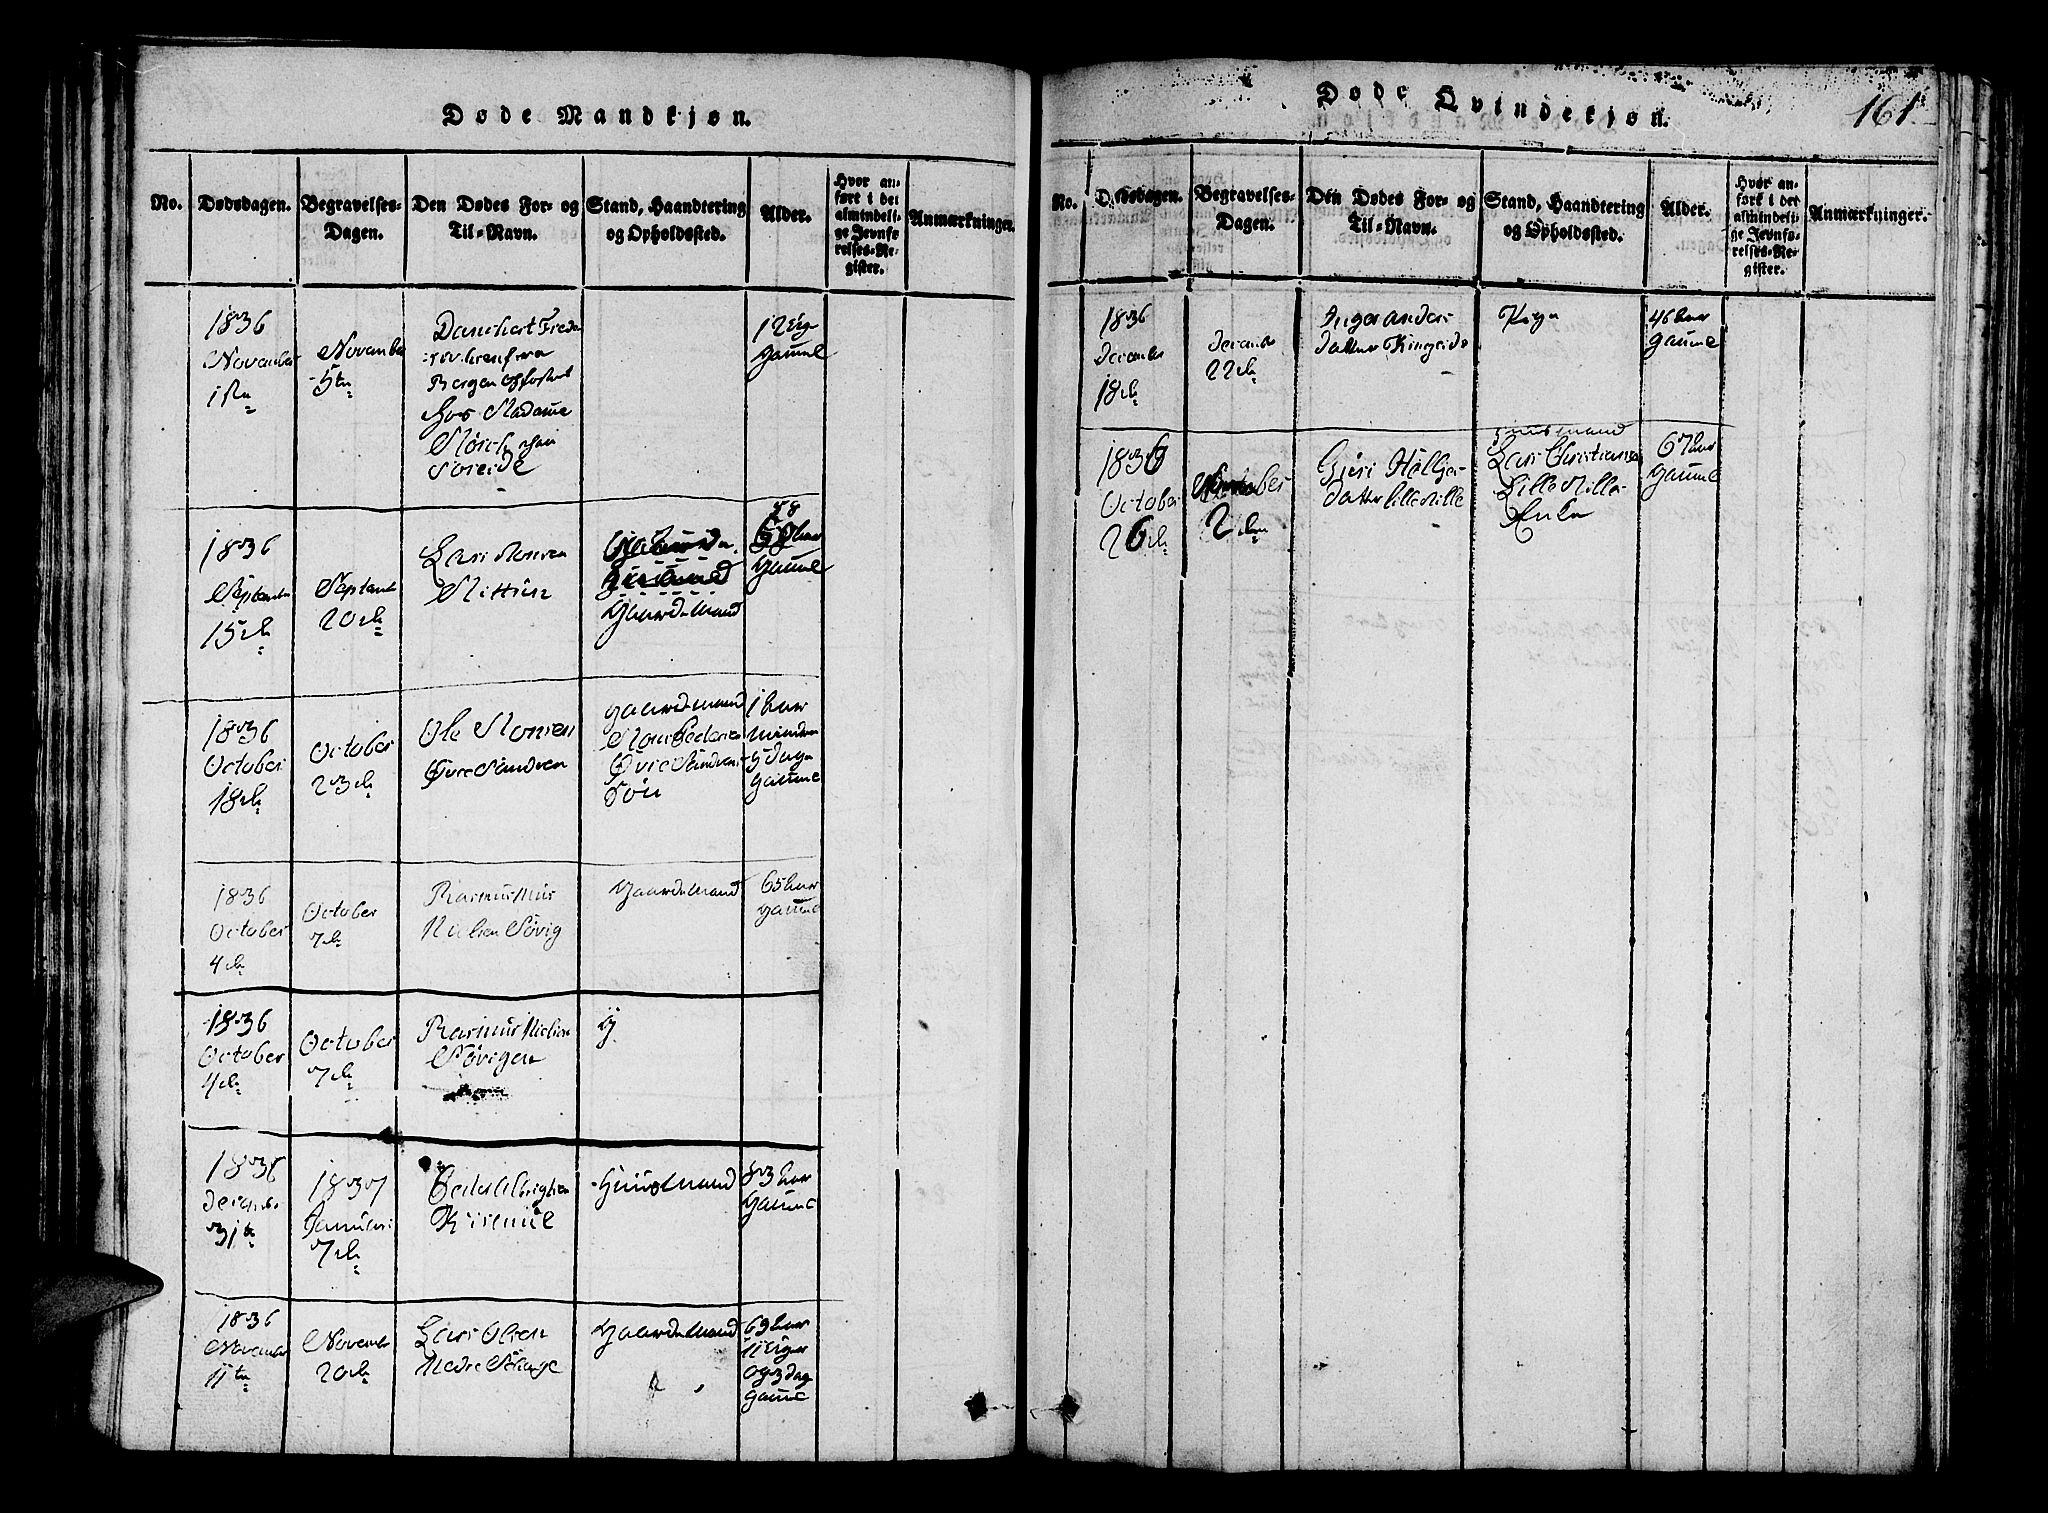 Døde Mandkjøn.
No.
Dødsdagen.
Begravelses-
Dagen.
Den Dødes For- og
Til-Navn.
Stand, Haandtering
og Opholdssted.
Alder.
Hvor an-
ført i det
almindeli-
ge Jevnfø-
relses-Re-
gister.
Anmærkninger.
1836
November
1ste
November
5te
Danchert Frede
Bergen opfostret
hos Madame
Søreide
12 Uger
gammel
1836
September
15de
September
20de
Lars Monsen
Gaardemand
58 Aar
gammel
1836
October
18de
October
23de
Ole Monsen
Øvre Sandven
Gaardemand
Mons Pedersen
Øvre Sandvens
Søn
1 Aar
mindre
5 dage
gammel
1836
October
4de
October
7de
Rasmus
Nielsen Søvig
Gaardemand
65 Aar
gammel
1836
October
4de
October
7de
Rasmus Nielsen
Søvigen
G
1836
December
31te
1837
Januari
7de
Huusmand
83 Aar
gammel
1836
November
11te
November
20de
Lars Olsen
Nedre
Gaardemand
69 Aar
11 Uger
og 3 dag
gammel
Døde Qvindekjøn.
161
No.
Dødsdagen.
Begravelses-
Dagen.
Den Dødes For- og
Til-Navn.
Stand, Haandtering
og Opholdssted.
Alder.
Hvor an-
ført i det
almindeli-
ge Jevnfø-
relses-Re-
gister.
Anmærkninger.
1836
December
18de
December
22de
Inger Anders
datter
Pige
46 Aar
gammel
1836
October
26de
2den
datter Lille
Huusmand
Lars Christiansen
Lille
Enke
67 Aar
gammel